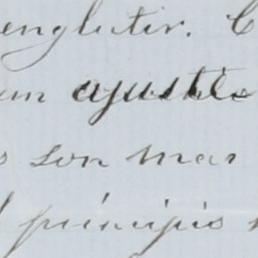 englutir. C
un apostle
son mar
principis